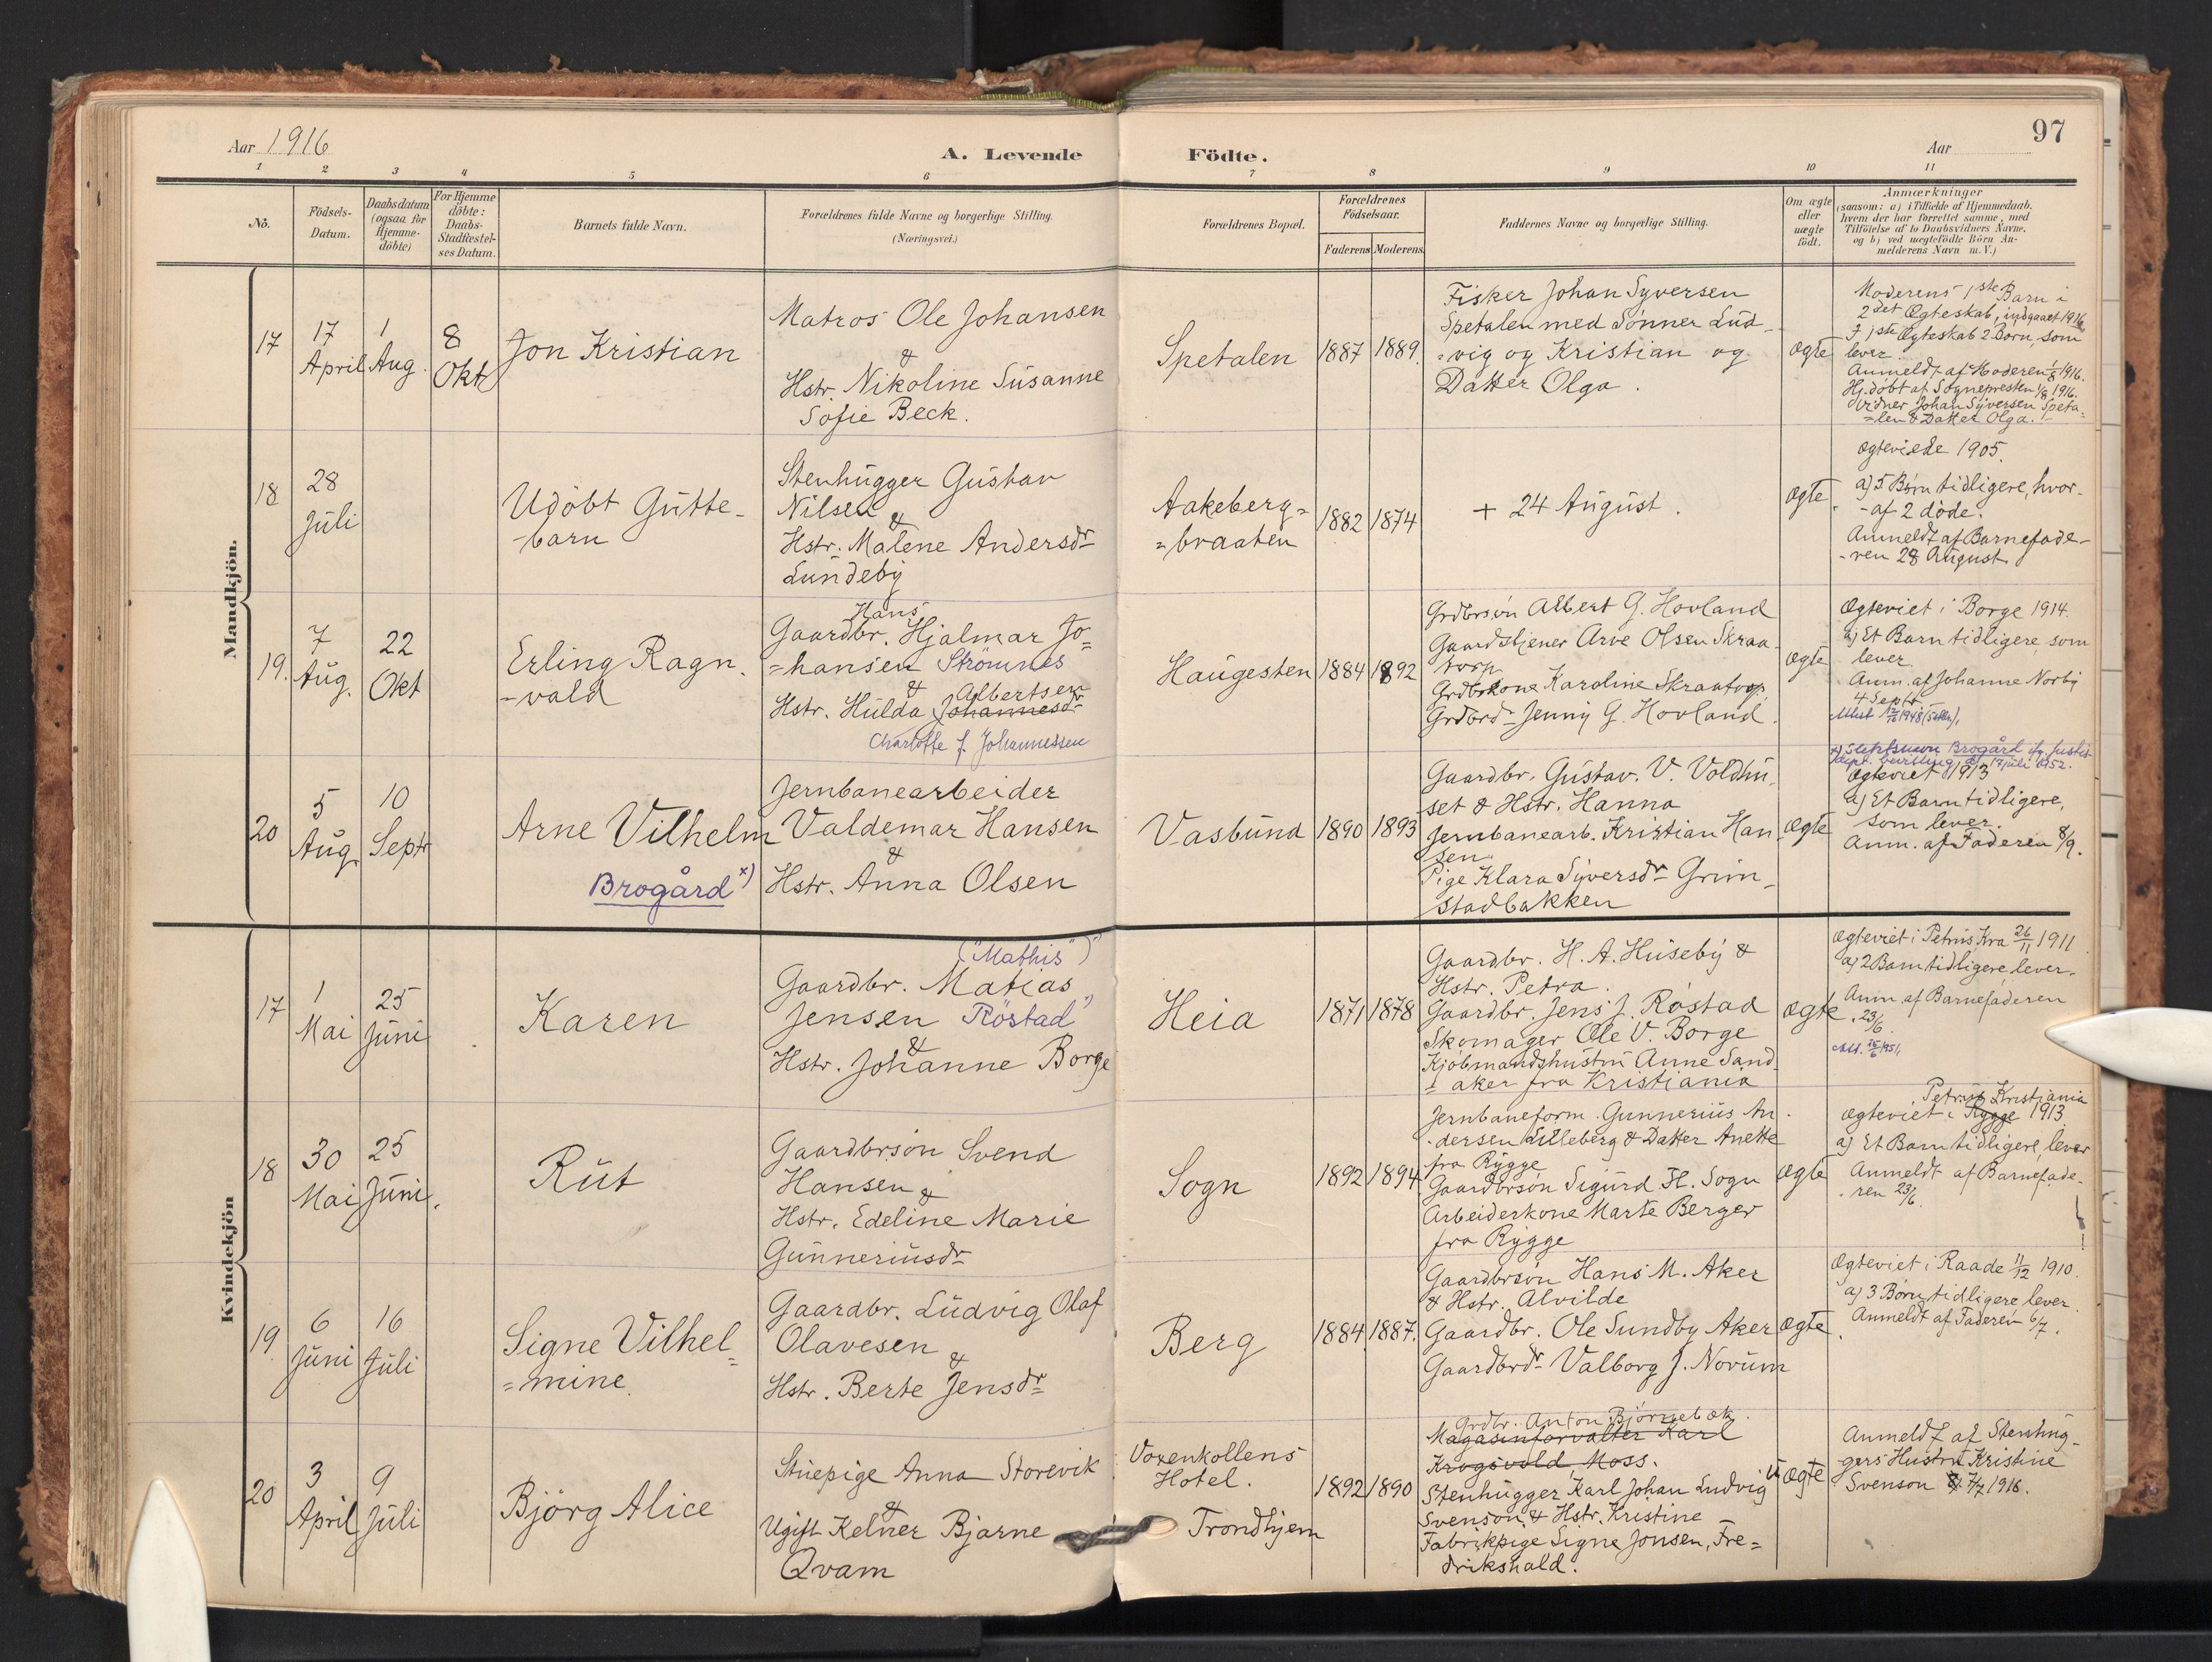 Aar 1916
A. Levende
Födte.
Aar
97
1 2 3 4 5 6 7 8 9 10 11
No.
Födsels-
Datum.
Daabsdatum
(ogsaa for
Hjemme-
döbte)
For Hjemme
döbte:
Daabs-
Stadfæstel-
ses Datum.
Barnets fulde Navn.
Forældrenes fulde Navne og borgerlige Stilling.
(Næringsvei.)
Forældrenes Bopæl.
Forældrenes
Födselsaar.
Faderens Moderens
Faddernes Navne og borgerlige Stilling.
Om ægte
eller
uægte
födt.
Anmærkninger
(saasom: a) i Tilfælde af Hjemmedaab.
hvem der har forrettet samme, med
Tilföielse af to Daabsvidners Navne.
og b) ved uægtefödte Börn An-
melderens Navn m.V.)
Mandkjön.
17
17
April
1
Aug.
8
Okt
Jon Kristian
Matros Ole Johansen
&
Hstr. Nikoline Susanne
Sofie Beck.
Spetalen
1887
1889.
Fisker Johan Syversen
Spetalen med Sönner Lud-
=vig og Kristian og
Datter Olga.
Ægte
Moderens 1ste Barn i
2det Ægteskab, indgaaet 1916
I 1ste Ægteskab 2 Børn, som
lever.
Anmeldt af Moderen 1/8 1916.
Hj.döbt af Sognepresten 1/8 1916.
Vidner Johan Syversen Speta-
=len & Datter Olga.
18
28
Juli
Udöbt Gutte-
-barn
Stenhugger Gustav
Nilsen
&
Hstr. Malene Andersdr
Lundeby
Aakeberg=
=braaten
1882
1874
+ 24 August.
Ægte
Ægteviede 1905.
a) 5 Børn tidligere, hvor-
-af 2 døde.
Anmeldt af Barnefade-
-ren 28 August
19.
7
Aug.
22
Okt
Erling Ragn.
-vald
Hans
Gaardbr. Hjalmar Jo=
=hansen Strömnes
& Albertsen
Hstr. Hulda Johannesdr
Charlotte f. Johannessen
Haugesten
1884
1892
Grdbrsön Albert G. Hovland
Gaardstjener Arve Olsen Skraa-
torp
Grdbrkone Karoline Skraatorp
Grdbrdr Jenny G. Hovland.
Ægte
Ægteviet i Borge 1914.
a) Et Barn tidligere, som
lever.
Anm. af Johanne Norby
4 Septr
20
5
Aug.
10
Septr
Arne Vilhelm
Brogård x)
Jernbanearbeider
Valdemar Hansen
&
Hstr. Anna Olsen
Vasbund
1890
1893
Gaardbr. Gustav. V. Voldhu-
set & Hstr. Hanna
Jernbanearb. Kristian Han-
sen
Pige Klara Syversdr Grim-
stadbakken
Ægte
x) Slektsnavn Brogård ifg. Justis-
dept. bevilling av 17 juli 1952.
Ægteviet 1913
a) Et Barn tidligere,
som lever.
Anm. af Faderen 8/9.
Kvindekjön
17
1
Mai
25
Juni
Karen
("Mathis")
Gaardbr. Matias
Jensen Röstad
&
Hstr. Johanne Borge
Heia
1871
1878
Gaardbr. H. A. Huseby &
Hstr. Petra.
Gaardbr. Jens J. Röstad
Skomager Ole V. Borge
Kjöbmandshustru Anne Sand-
=aker fra Kristiania
Ægte
Ægteviet i Petrus Kra 26/11 1911
a) 2 Barn tidligere lever.
Anm. af Barnefaderen
23/6.
18
30
Mai
25
Juni.
Rut
Gaardbrsön Svend
Hansen
&
Hstr. Edeline Marie
Gunneriusdr
Sogn
1892
1894
Jernbaneform. Gunnerius An-
dersen Lilleberg & Datter Anette
fra Rygge
Gaardbrsön Sigurd H. Sogn
Arbeiderkone Marte Berger
fra Rygge
Ægte
Petrus, Kristiania
Ægteviet i Rygge 1913
a) Et Barn tidligere, lever
Anmeldt af Barnefade-
-ren 23/6.
19
6
Juni
16
Juli
Signe Vilhel=
=mine
Gaardbr. Ludvig Olaf
Olavesen
&
Hstr. Berte Jensdr
Berg
1884
1887.
Gaardbrsön Hans M. Aker
& Hstr. Alvilde
Gaardbr. Ole Sundby Aker
Gaardbrdr Valborg J. Novum
Ægte
Ægteviet i Raade 11/12 1910.
a) 3 Børn tidligere lever.
Anmeldt af Faderen 6/7.
20
3
April
9
Juli
Björg Alice
Stuepige Anna Storevik
&
Ugift Kelner Bjarne
Qvam
Voxenkollens
Hotel.
Trondhjem
1892
1890
Grdbr. Anton Björnebæk.
Magasinforvalter Karl
Krogsvold Moss.
Stenhugger Karl Johan Ludvig
Svenson & Hstr. Kristine
Fabrikpige Signe Jonsen, Fre=
drikshald.
uægte
Anmeldt af Stenhug-
gers Hustru Kristine
Svenson 7/7 1916.